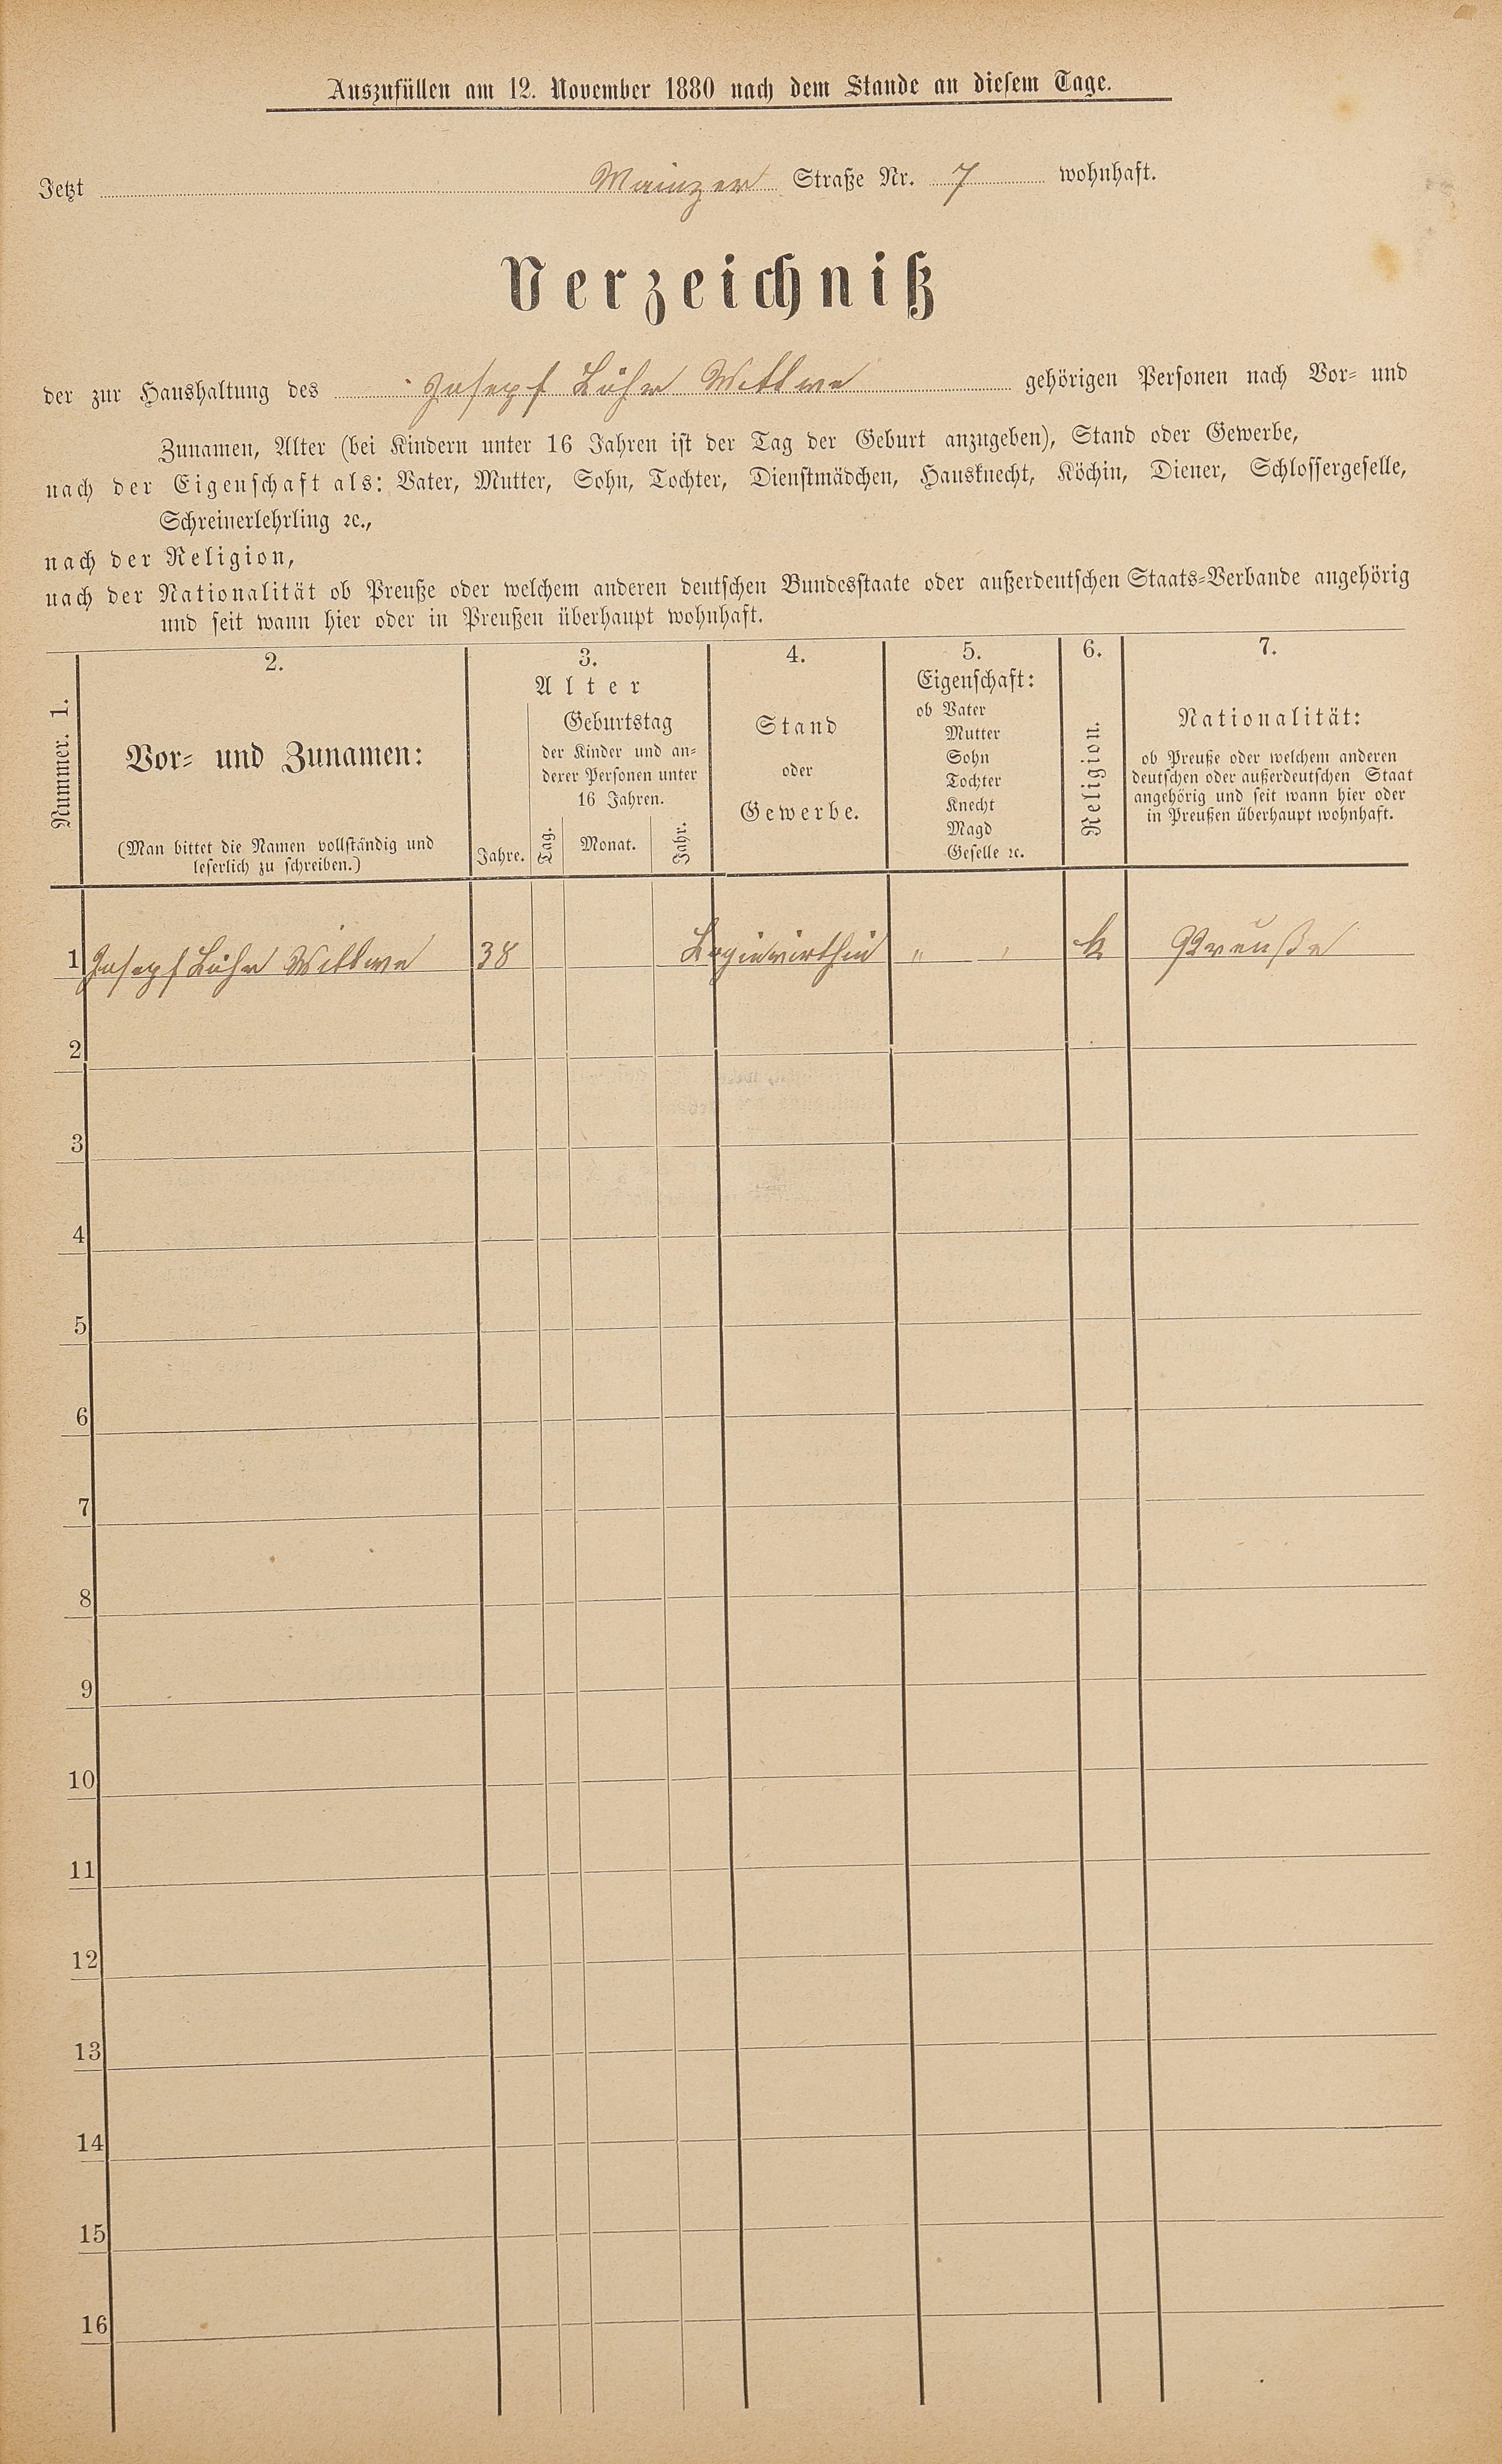 Auszufüllen am 12. November 1880 nach dem Stande an diesem Tage.
Jetzt Mainzer Straße Nr. 7 wohnhaft.
Verzeichniß
der zur Haushaltung des Josepf Lühr Wittwe gehörigen Personen nach Vor- und
Zunamen, Alter (bei Kindern unter 16 Jahren ist der Tag der Geburt anzugeben), Stand oder Gewerbe,
nach der Eigenschaft als: Vater, Mutter, Sohn, Tochter, Dienstmädchen, Hausknecht, Köchin, Diener, Schlossergeselle,
Schreinerlehrling ꝛc.,
nach der Religion,
nach der Nationalität ob Preuße oder welchem anderen deutschen Bundesstaate oder außerdeutschen Staats-Verbande angehörig
und seit wann hier oder in Preußen überhaupt wohnhaft.
Nummer. 1.
2.
Vor- und Zunamen:
(Man bittet die Namen vollständig und
leserlich zu schreiben.)
3.
Alter
Jahre.
Geburtstag
der Kinder und an-
derer Personen unter
16 Jahren.
Tag. Monat. Jahr.
4.
Stand
oder
Gewerbe.
5.
Eigenschaft:
ob Vater
Mutter
Sohn
Tochter
Knecht
Magd
Geselle ꝛc.
6.
Religion.
7.
Nationalität:
ob Preuße oder welchem anderen
deutschen oder außerdeutschen Staat
angehörig und seit wann hier oder
in Preußen überhaupt wohnhaft.
1 Josepf Lühr Wittwe 38 Logiswirthin " " k Preuße
2
3
4
5
6
7
8
9
10
11
12
13
14
15
16